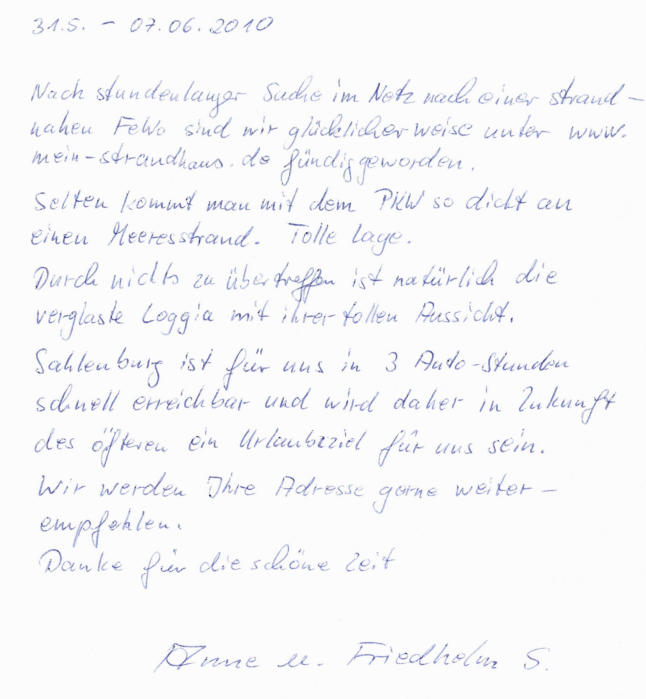 31.5. - 07.06.2010
Nach stundenlanger Suche im Netz nach einer strand-
nahen FeWo sind wir glücklicherweise unter www.
mein-strandhaus.de fündig geworden.
Selten kommt man mit dem PKW so dicht an
einen Meeresstrand. Tolle Lage.
Durch nichts zu übertreffen ist natürlich die
verglaste Loggia mit ihrer tollen Aussicht.
Sahlenburg ist für uns in 3 Auto-Stunden
schnell erreichbar und wird daher in Zukunft
des öfteren ein Urlaubsziel für uns sein.
Wir werden Ihre Adresse gerne weiter-
empfehlen.
Danke für die schöne Zeit
Anne u. Friedhelm S.